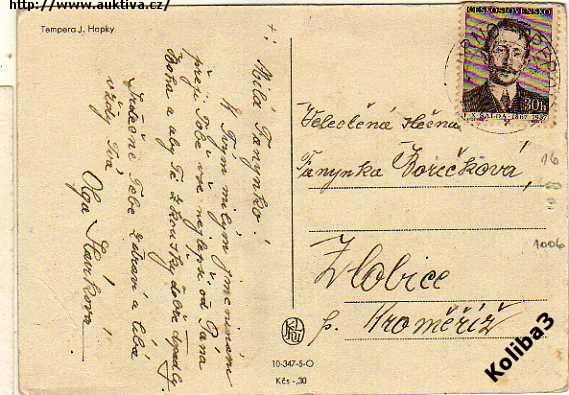 http://www.auktiva.cz/
Tempera J. Hapky
+
Milá Fanynko!
K Tvým milým jmeninám
přeji Tobě vše nejlepší od Pána
Boha a aby Tě zkoušky dobře dopadly.
Srdečně Tebe zdraví a líbá
vždy Tvá
Olga
ČESKOSLOVENSKO
30h
F. X. ŠALDA 1867 1937
Velectěná slečna
Fanynka Borečková,
Zlobice
p. Kroměříž
16
1006
10-347-5-O
Kčs -,30
Koliba3